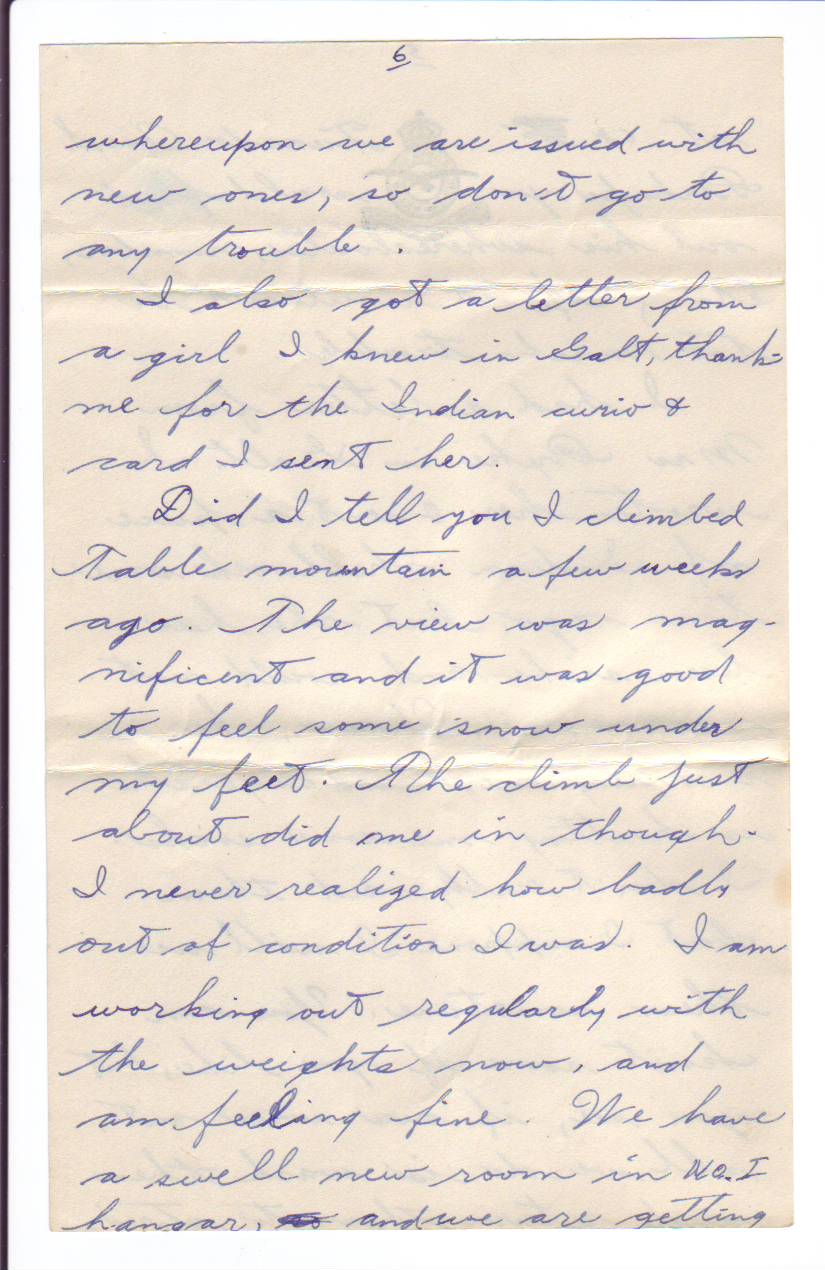 6
whereupon we are issued with
new ones, so don't go to
any trouble.
I also got a letter from
a girl I knew in Galt, thank-
me for the Indian curio &
card I sent her.
Did I tell you I climbed
Table mountain a few weeks
ago. The view was mag-
nificent and it was good
to feel some snow under
my feet. The climb just
about did me in though.
I never realized how badly
out of condition I was. I am
working out regularly with
the weights now, and
am feeling fine. We have
a swell new room in No. I
hangar, and we are getting